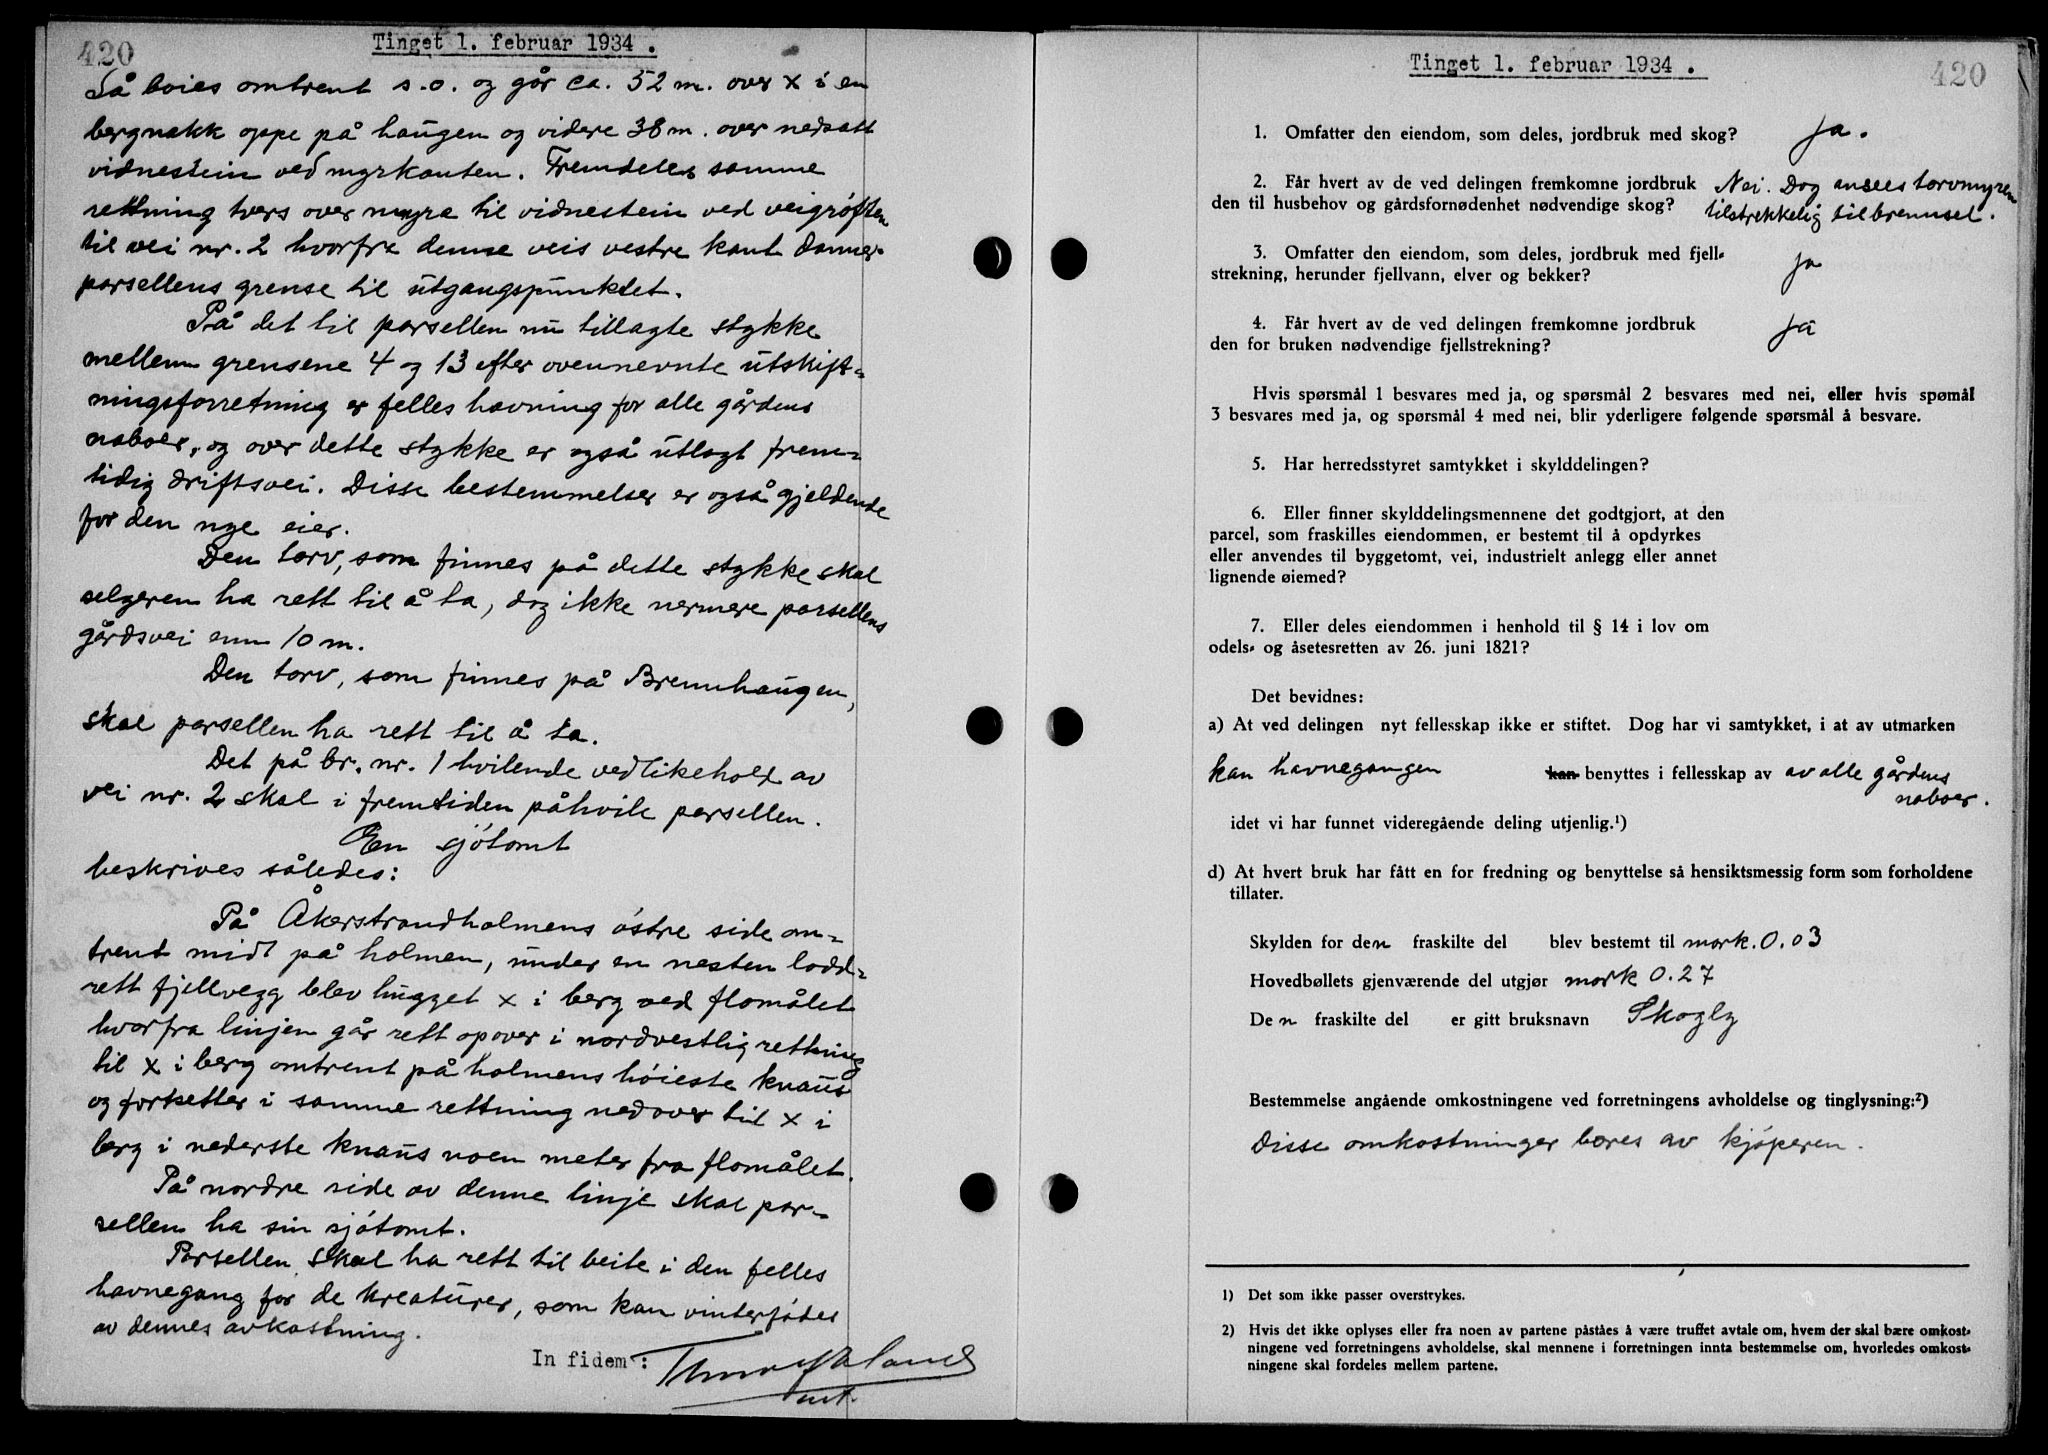 420
Tinget 1. februar 1934.
Så boies omtrent s.o. og går ca. 52 m. over x i en
bergnakk oppe på haugen og videre 38 m. over nedsatt
vidnestein ved myrkanten. Fremdeles samme
rettning tvers over myra til vidnestein ved veigrøften
til vei nr. 2 hvorfra denne veis vestre kant danner
parsellens grense til utgangspunktet.
På det til parsellen nu tillagte stykke
mellem grensene 4 og 13 efter ovennevnte utskift-
ningsforretning er felles havning for alle gårdens
naboer, og over dette stykke er også utlagt frem-
tidig driftsvei. Disse bestemmelser er også gjeldende
for den nye eier.
Den torv, som finnes på dette stykke skal
selgeren ha rett til å ta, dog ikke nermere parsellens
gårdsvei enn 10 m.
Den torv, som finnes på Brennhaugen,
skal parsellen ha rett til å ta.
Det på br. nr. 1 hvilende vedlikehold av
vei nr. 2 skal i fremtiden påhvile parsellen.
En sjøtomt
beskrives således:
På Åkerstrandholmens østre side om-
trent midt på holmen, under en nesten lodd-
rett fjellvegg blev hugget x i berg ved flomålet
hvorfra linjen går rett opover i nordvestlig rettning
til x i berg omtrent på holmens høieste knaus
og fortsetter i samme rettning nedover til x i
berg i nederste knaus noen meter fra flomålet.
På nordre side av denne linje skal par-
sellen ha sin sjøtomt.
Parsellen skal ha rett til beite i den felles
havnegang for de kreaturer, som kan vinterfødes
av dennes avkastning.
In fidem:
Tinget 1. februar 1934.
420
1. Omfatter den eiendom, som deles, jordbruk med skog? Ja.
2. Får hvert av de ved delingen fremkomne jordbruk Nei. Dog ansees torvmyren
den til husbehov og gårdsfornødenhet nødvendige skog? tilstrekkelig til brennsel.
3. Omfatter den eiendom, som deles, jordbruk med fjell-
strekning, herunder fjellvann, elver og bekker? Ja
4. Får hvert av de ved delingen fremkomne jordbruk Ja
den for bruken nødvendige fjellstrekning?
Hvis spørsmål 1 besvares med ja, og spørsmål 2 besvares med nei, eller hvis spømål
3 besvares med ja, og spørsmål 4 med nei, blir yderligere følgende spørsmål å besvare.
5. Har herredsstyret samtykket i skylddelingen?
6. Eller finner skylddelingsmennene det godtgjort, at den
parcel, som fraskilles eiendommen, er bestemt til å opdyrkes
eller anvendes til byggetomt, vei, industrielt anlegg eller annet
lignende øiemed?
7. Eller deles eiendommen i henhold til § 14 i lov om
odels- og åsetesretten av 26. juni 1821?
Det bevidnes:
a) At ved delingen nyt fellesskap ikke er stiftet. Dog har vi samtykket, i at av utmarken
kan havnegangen kan benyttes i fellesskap av av alle gårdens
naboer.
idet vi har funnet videregående deling utjenlig.¹)
d) At hvert bruk har fått en for fredning og benyttelse så hensiktsmessig form som forholdene
tillater.
Skylden for den fraskilte del blev bestemt til mark. 0.03
Hovedbøllets gjenværende del utgjør mark 0.27
Den fraskilte del er gitt bruksnavn Skogly
Bestemmelse angående omkostningene ved forretningens avholdelse og tinglysning:²)
Disse omkostninger bæres av kjøperen.
1) Det som ikke passer overstrykes.
2) Hvis det ikke oplyses eller fra noen av partene påståes å være truffet avtale om, hvem der skal bære omkost-
ningene ved forretningens avholdelse, skal mennene i forretningen innta bestemmelse om, hvorledes omkost-
ningene skal fordeles mellem partene.